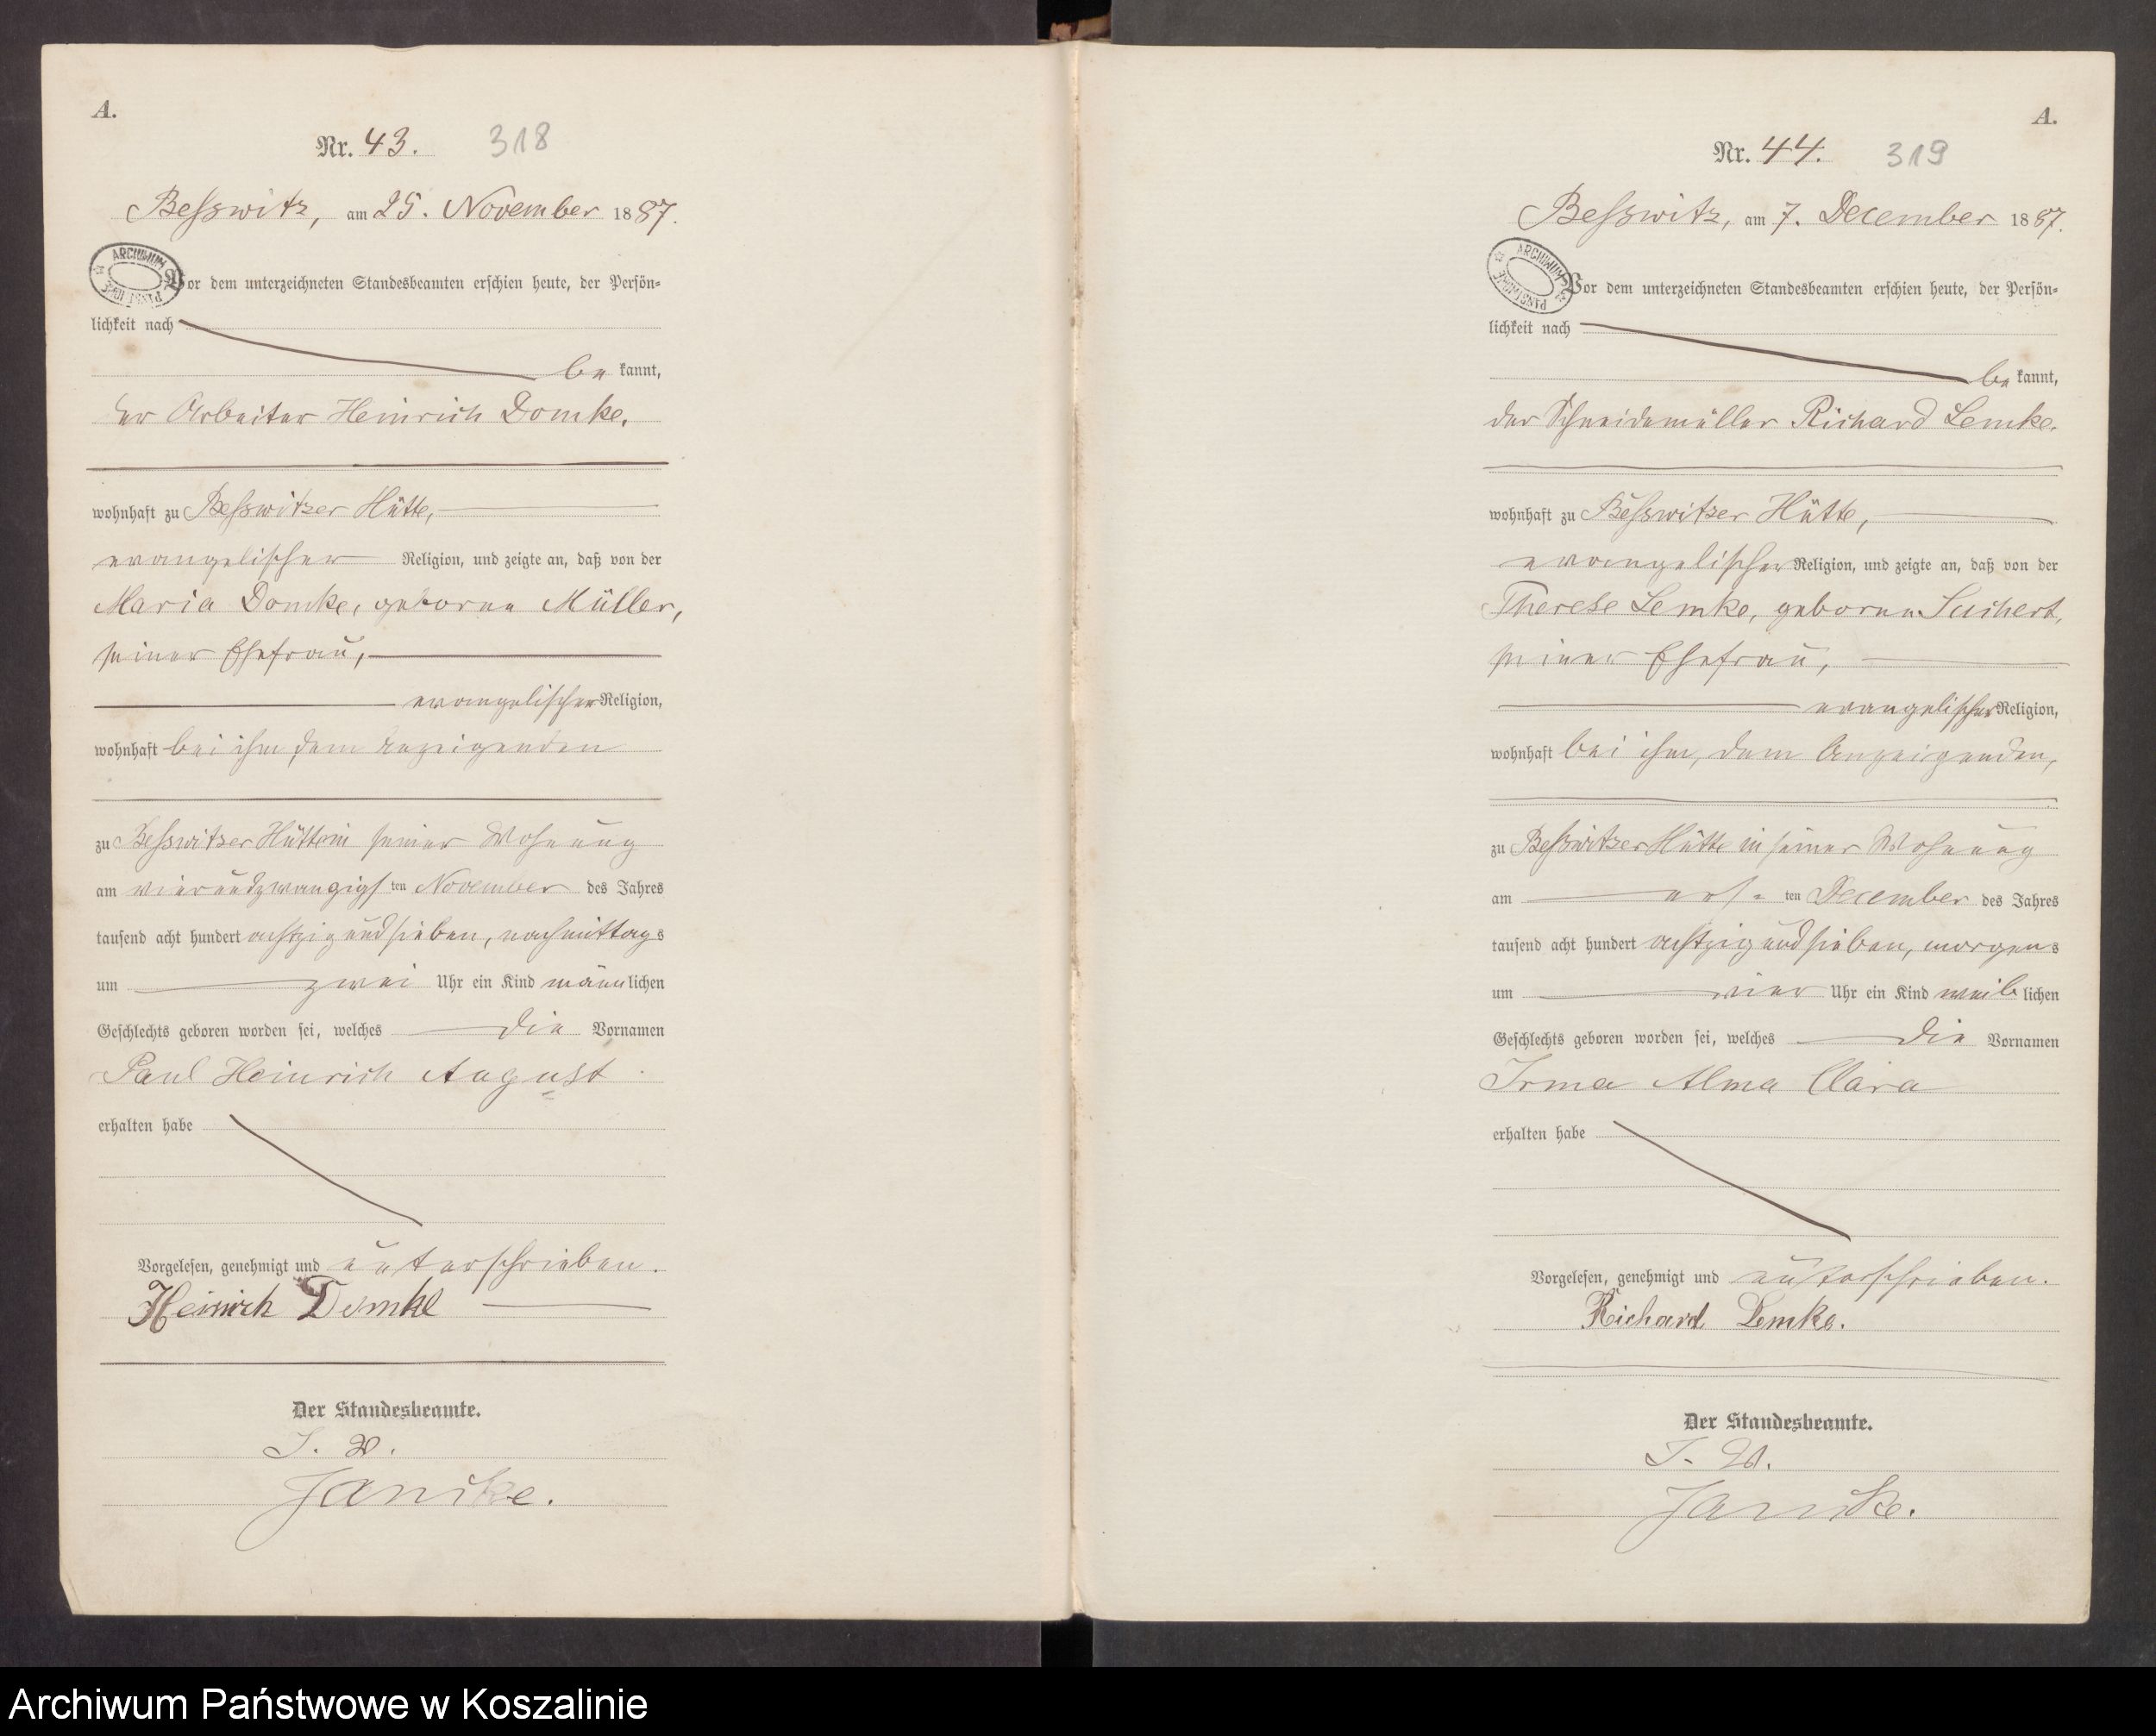 A.
Nr. 43. 318
Besswitz, am 25. November 1887.
ARCHIWUM PAŃSTWOWE
Vor dem unterzeichneten Standesbeamten erschien heute, der Persön-
lichkeit nach
be kannt,
der Arbeiter Heinrich Domke,
wohnhaft zu Besswitzer Hütte,
evangelischer Religion, und zeigte an, daß von der
Maria Domke, geborene Müller,
seiner Ehefrau,
evangelischer Religion,
wohnhaft bei ihm, dem Anzeigenden
zu Besswitzer Hütte in seiner Wohnung
am vierundzwanzigs ten November des Jahres
tausend acht hundert achtzig und sieben, nachmittags
um zwei Uhr ein Kind männlichen
Geschlechts geboren worden sei, welches die Vornamen
Paul Heinrich August
erhalten habe
Vorgelesen, genehmigt und unterschrieben.
Heinrich Domke
Der Standesbeamte.
J. V.
Janicke.
A.
Nr. 44. 319
Besswitz, am 7. December 1887.
ARCHIWUM PAŃSTWOWE
Vor dem unterzeichneten Standesbeamten erschien heute, der Persön-
lichkeit nach
be kannt,
der Schneidemüller Richard Lemke.
wohnhaft zu Besswitzer Hütte,
evangelischer Religion, und zeigte an, daß von der
Therese Lemke, geborene
seiner Ehefrau,
evangelischer Religion,
wohnhaft bei ihm, dem Anzeigenden,
zu Besswitzer Hütte in seiner Wohnung
am ers- ten December des Jahres
tausend acht hundert achtzig und sieben, morgens
um vier Uhr ein Kind weiblichen
Geschlechts geboren worden sei, welches die Vornamen
Irma Alma Clara
erhalten habe
Vorgelesen, genehmigt und unterschrieben.
Richard Lemke.
Der Standesbeamte.
J. V.
Janicke.
Archiwum Państwowe w Koszalinie